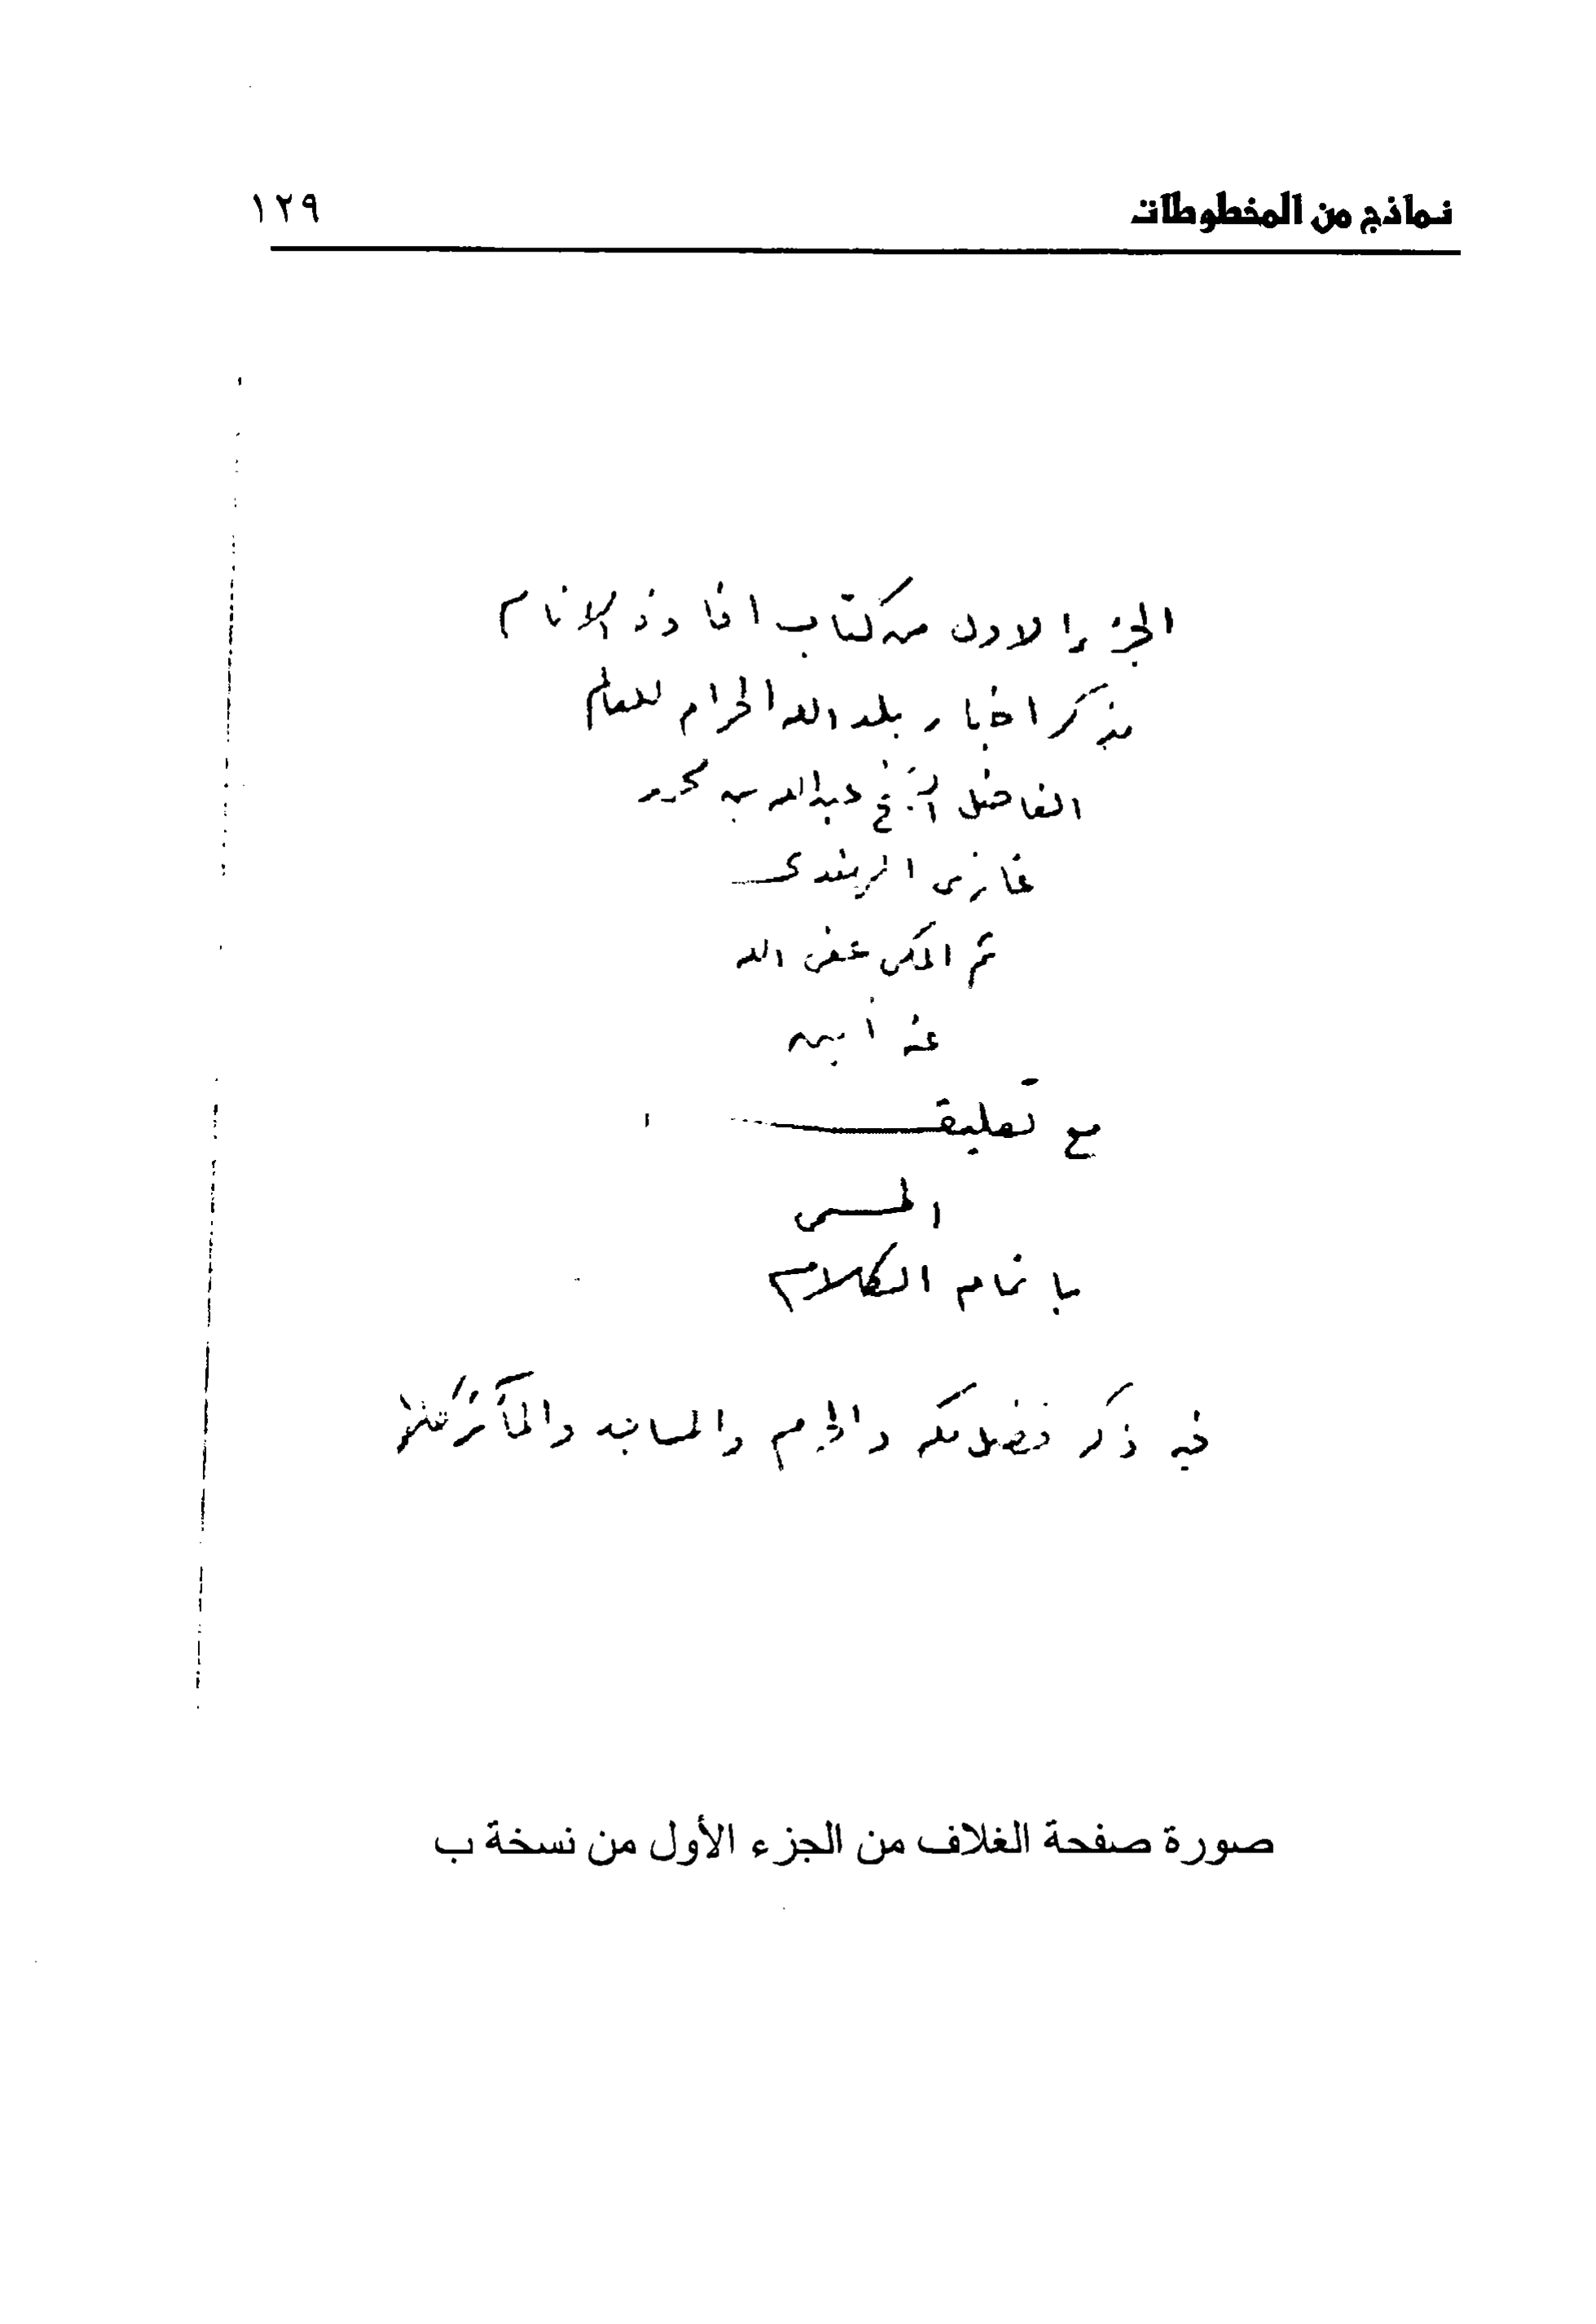 نماذج من المخطوطات ١٢٩
الجزء الاول من كتاب افادة الانام
بذكر اخبار بلد الله الحرام للعالم
الفاضل الشيخ عبدالله بن محمد
غازى الهندى
ثم المكى عفى الله
عنه آمين
مع تعليقـــه
المسمى
باتمام الكلام
فيه ذكر فضل مكه والحرم والمساجد والمآثر
صورة صفحة الغلاف من الجزء الأول من نسخة ب